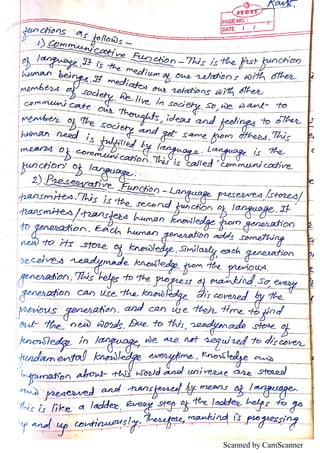 Jyoti
PAGE NO.:
DATE: / /
functions as follows-
1) Communicative Function - This is the first function
of language. It is the medium of our relations with other
human beings. It mediates our relations with other
members of society. We live in society. So, we want to
communicate our thoughts, ideas and feelings to other
member of the society and get same from others. This
human need is fulfilled by language. Language is the
means of communication. This is called communicative
function of language.
2) Preservative Function - Language preserves/stores/
transmites. This is the second function of language. It
transmites/transfers human knowledge from generation
to generation. Each human generation adds something
new to its store of knowledge. Similarly, each generation
receives readymade knowledge from the previous
generation. This helps to the progress of mankind. So, every
generation can use the knowledge discovered by the
previous generation. and can use their time to find
out the new words. Due to this, readymade store of
knowledge, in language, we are not required to discover
fundamental knowledge everytime. Knowledge and
information about this world and universe are stored
and preserved and transferred by means of language.
This is like a ladder. Every step of the ladder helps to go
up and up continuously. Therefore, mankind is progressing
Scanned by CamScanner